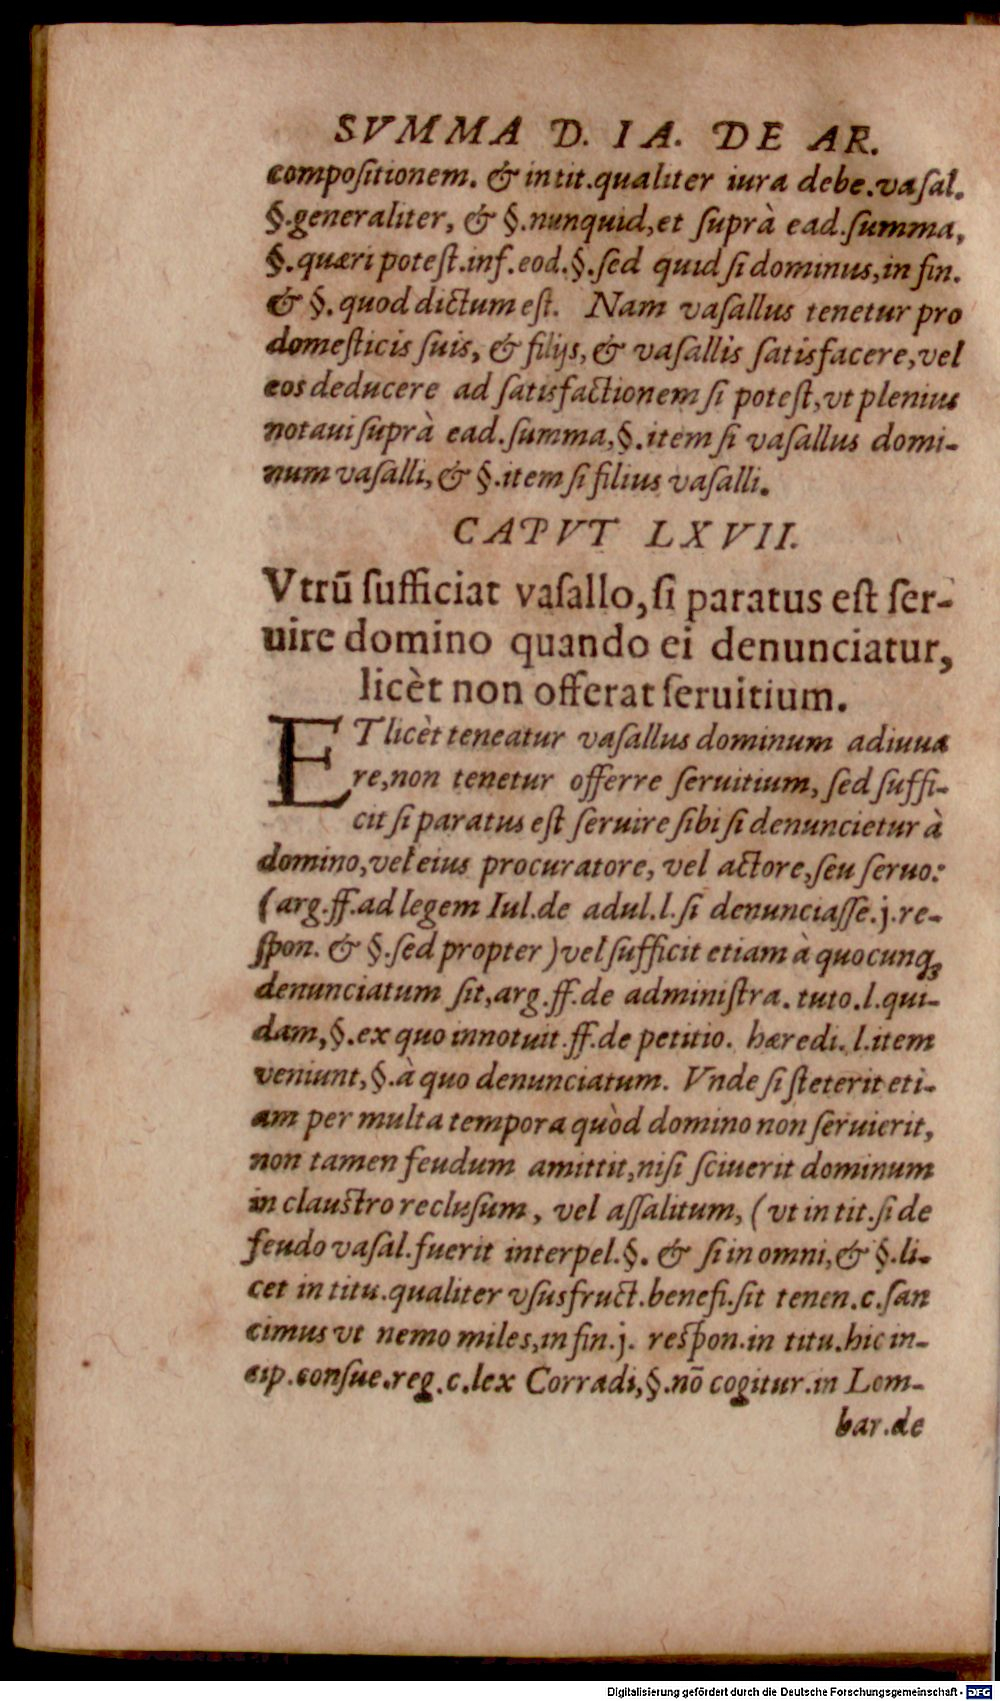 SVMMA D. IA. DE AR.
compoſitionem. & in tit. qualiter iura debe. vaſal.
§. generaliter, & §. nunquid, et ſuprà ead. ſumma,
§. quæri poteſt. inf. eod. §. ſed quid ſi dominus, in fin.
& §. quod dictum eſt. Nam vaſallus tenetur pro
domeſticis ſuis, & filijs, & vaſallis ſatisfacere, vel
eos deducere ad ſatisfactionem ſi poteſt, vt plenius
notaui ſuprà ead. ſumma, §. item ſi vaſallus domi-
num vaſalli, & §. item ſi filius vaſalli.
CAPVT LXVII.
Vtrũ ſufficiat vaſallo, ſi paratus eſt ſer-
uire domino quando ei denunciatur,
licèt non offerat ſeruitium.
ET licèt teneatur vaſallus dominum adiuua
re, non tenetur offerre ſeruitium, ſed ſuffi-
cit ſi paratus eſt ſeruire ſibi ſi denuncietur à
domino, vel eius procuratore, vel actore, ſeu ſeruo:
(arg. ff. ad legem Iul. de adul. l. ſi denunciaſſe. j. re-
ſpon. & §. ſed propter) vel ſufficit etiam à quocunq;
denunciatum ſit, arg. ff. de adminiſtra. tuto. l. qui-
dam, §. ex quo innotuit. ff. de petitio. hæredi. l. item
veniunt, §. à quo denunciatum. Vnde ſi ſteterit eti-
am per multa tempora quòd domino non ſeruierit,
non tamen feudum amittit, niſi ſciuerit dominum
in clauſtro recluſum, vel aſſalitum, (vt in tit. ſi de
feudo vaſal. fuerit interpel. §. & ſi in omni, & §. li-
cet in titu. qualiter vſusfruct. benefi. ſit tenen. c. ſan
cimus vt nemo miles, in fin. j. reſpon. in titu. hic in-
cip. conſue. reg. c. lex Corradi, §. nõ cogitur. in Lom-
bar. de
Digitalisierung gefördert durch die Deutsche Forschungsgemeinschaft - DFG